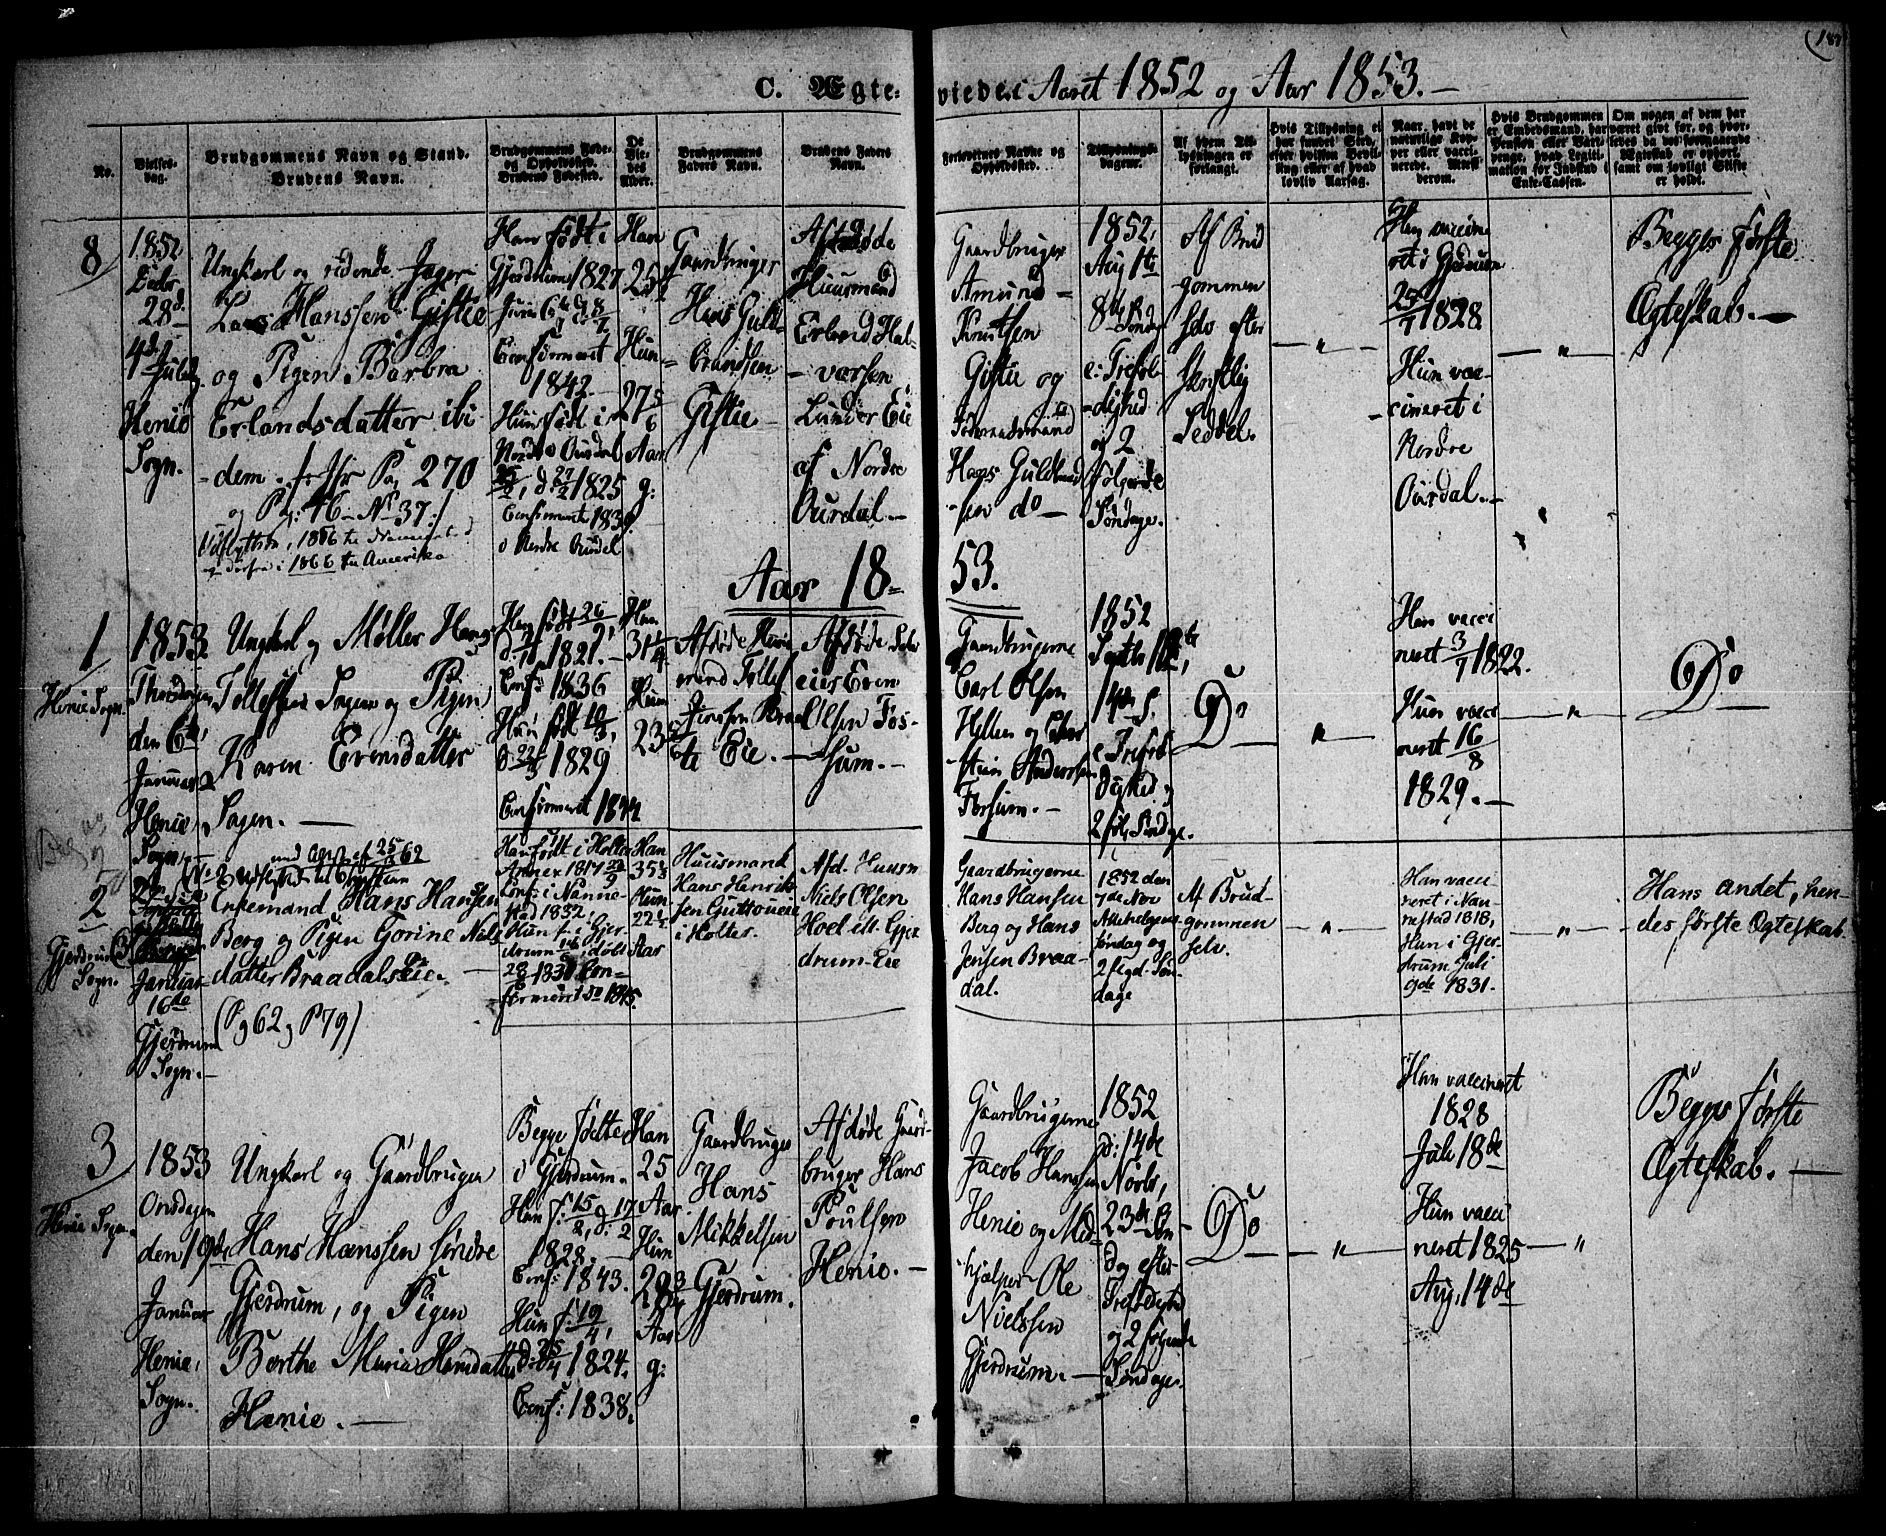 C. Ægte-
viede i Aaret 1852 og Aar 1853.
No.
Vielses-
dag.
Brudgommens Navn og Stand.
Brudens Navn.
Brudgommens Føde-
og Opholdssted.
Brudens Fødested.
De
Vie-
des
Alder.
Brudgommens
Faders Navn.
Brudens Faders
Navn.
Forlovernes Navne og
Opholdssted.
Tillysnings-
dagene.
Af hvem Til-
lysningen er
forlangt.
Hvis Tillysning ei
har fundet Sted,
efter hvilken Bevil-
ling eller af hvad
lovlig Aarsag.
Naar havt de
naturlige Kop-
per eller vacci-
nerede.
Hvis Brudgommen
er Embedsmand, har
Pension eller Vart-
penge, hvad Legiti-
mation for Indskud i
Enke-Cassen.
Om nogen af dem har
været gift før, og hvor-
ledes da det foregaaende
Ægteskab er ophørt,
samt om lovligt Skifte
er holdt.
8
1852
28d
4d
Henie
Sogn.
Ungkarl og ridende Jæger
Lars Hanssen Gistie
og Pigen Barbra
Erlandsdatter ibi-
dem. Pag 270
og Pag: 46 No 37
1866 til Amerika
Han født i
Gjerdrum 1827
Confirmeret
1842.
Hun født i
Nordre Ourdal
1825
Confirmeret 1839
i Nordre Ourdal
Han
25
Hun
27 5/6
Aar
g:
Gaardbruger
Hans Guld-
brandsen
Gistie
Afdøde
Huusmand
Erland Hal-
-vorsen
Eie
af Nordre
Ourdal.
Gaardbruger
Amund
Knutsen
Gistie og
Hans Guldbrand-
sen do
1852,
Aug 1te
8de Søndag
e: Trefol-
-dighed
og 2
følgende
Søndage.
Af Brud
gommen
selv efter
Skriftlig
Seddel.
"
Han vaccine
ret i Gjerdrum
1828
Hun vac-
cineret i
Nordre
Ourdal.
"
Begges første
Ægteskab.
Aar 18=
53.
1
Henie Sogn.
1853
Thorsdagen
den 6te
Januar
Henie
Sogn
Ungkarl og Møller Hans
Tollefsen Sogen og Pigen
Karen Evensdatter
Sogen.
Han født 26
1821.
Conf: 1836
Hun født
1829
Confirmeret 1844
Han
31 1/4
Hun
23
Afdøde Huus
mand Tollef
Jensen
Eie.
Afdøde
eier Even
Olsen Fos-
sum.
Gaardbrugerne
Carl Olsen
Hellen og
Anderssen
Fossum.
1852
14de S.
e. Trefol-
dighed og
2 følg. Søndge.
Do
"
Han vacci
neret 3/7 1822.
Hun vacci
neret 16/8
1829.
"
Do
2
Gjerdrum
Sogn.
Januar
16de
Gjerdrum
Sogn.
Enkemand Hans Hansen
Berg og Pigen Gorine Niels
datter Braadalseie.
(Pag 62 og P 79)
Han født i Holter
Annex 1817
Conf: i Nanne-
stad 1832.
Hun f. i Gjer-
drum døbt
1830 Con-
firmeret do 1845.
Han
35
Hun
22
Aar
Huusmand
Hans Henrik-
sen
i Holter.
Afd. Huusm
Niels Olsen
Hoel i Gjer
drum Eie
Gaardbrugerne
Hans Hansen
Berg og Hans
Jensen Braa-
dal.
1852 den
7de Nov
Allehelgens
Søndag og
2 flgd. Søn-
dage
Af Brud-
gommen
selv.
"
Han vacci
neret i Nan-
nestad 1818,
Hun i Gjer
drum Juli
9de 1831.
"
Hans andet, hen-
des første Ægteskab.
3
Henie Sogn.
1853
Onsdagen
den 19de
Januar
Henie,
Sogn.
Ungkarl og Gaardbruger
Hans Hanssen søndre
Gjerdrum, og Pigen
Berthe Maria Hansdatter
Henie.
Begge fødte
i Gjerdrum.
Han f: 15/2, d. 17/2
1828.
Conf: 1843.
Hun f: 19/4,
d: 25/4 1824.
Conf: 1838.
Han
25
Aar
Hun
28 3/4
Aar
g:
Gaardbruger
Hans
Mikkelsen
Gjerdrum.
Afdøde Gaard-
bruger Hans
Poulsen
Henie.
Gaardbrugerne
Jacob Hanssen
Henie og Med-
hjælper Ole
Nielssen
Gjerdrum.
1852
d: 14de
Novbr,
23de Søn-
dag efter
Trefoldighed
og 2 følgende
Søndage.
Do
"
Han vaccineret
1828
Juli 18de
Hun vacci
neret 1825
Aug, 14de
"
Begges første
Ægteskab.